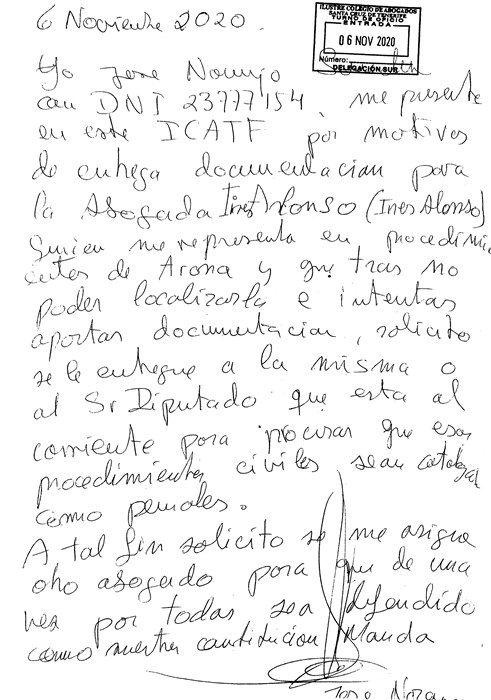 6 Noviembre 2020.
ILUSTRE COLEGIO DE ABOGADOS
SANTA CRUZ DE TENERIFE
TURNO DE OFICIO
ENTRADA
06 NOV 2020
Número:
DELEGACIÓN SUR
Yo Jose
con DNI 23777154, me presente
en este ICATF por motivos
de entrega documentacion para
la Abogada Ines Alonso (Ines Alonso)
Quien me representa en procedimi
entos de Arona y que tras no
poder localizarla e intentar
aportar documentacion, solicito
se le entregue a la misma o
al Sr Diputado que esta al
corriente para procurar que esos
procedimientos civiles sean
como penales.
A tal fin solicito se me asigne
otro abogado para que de una
vez por todas sea defendido
como nuestra constitucion Manda
Jose